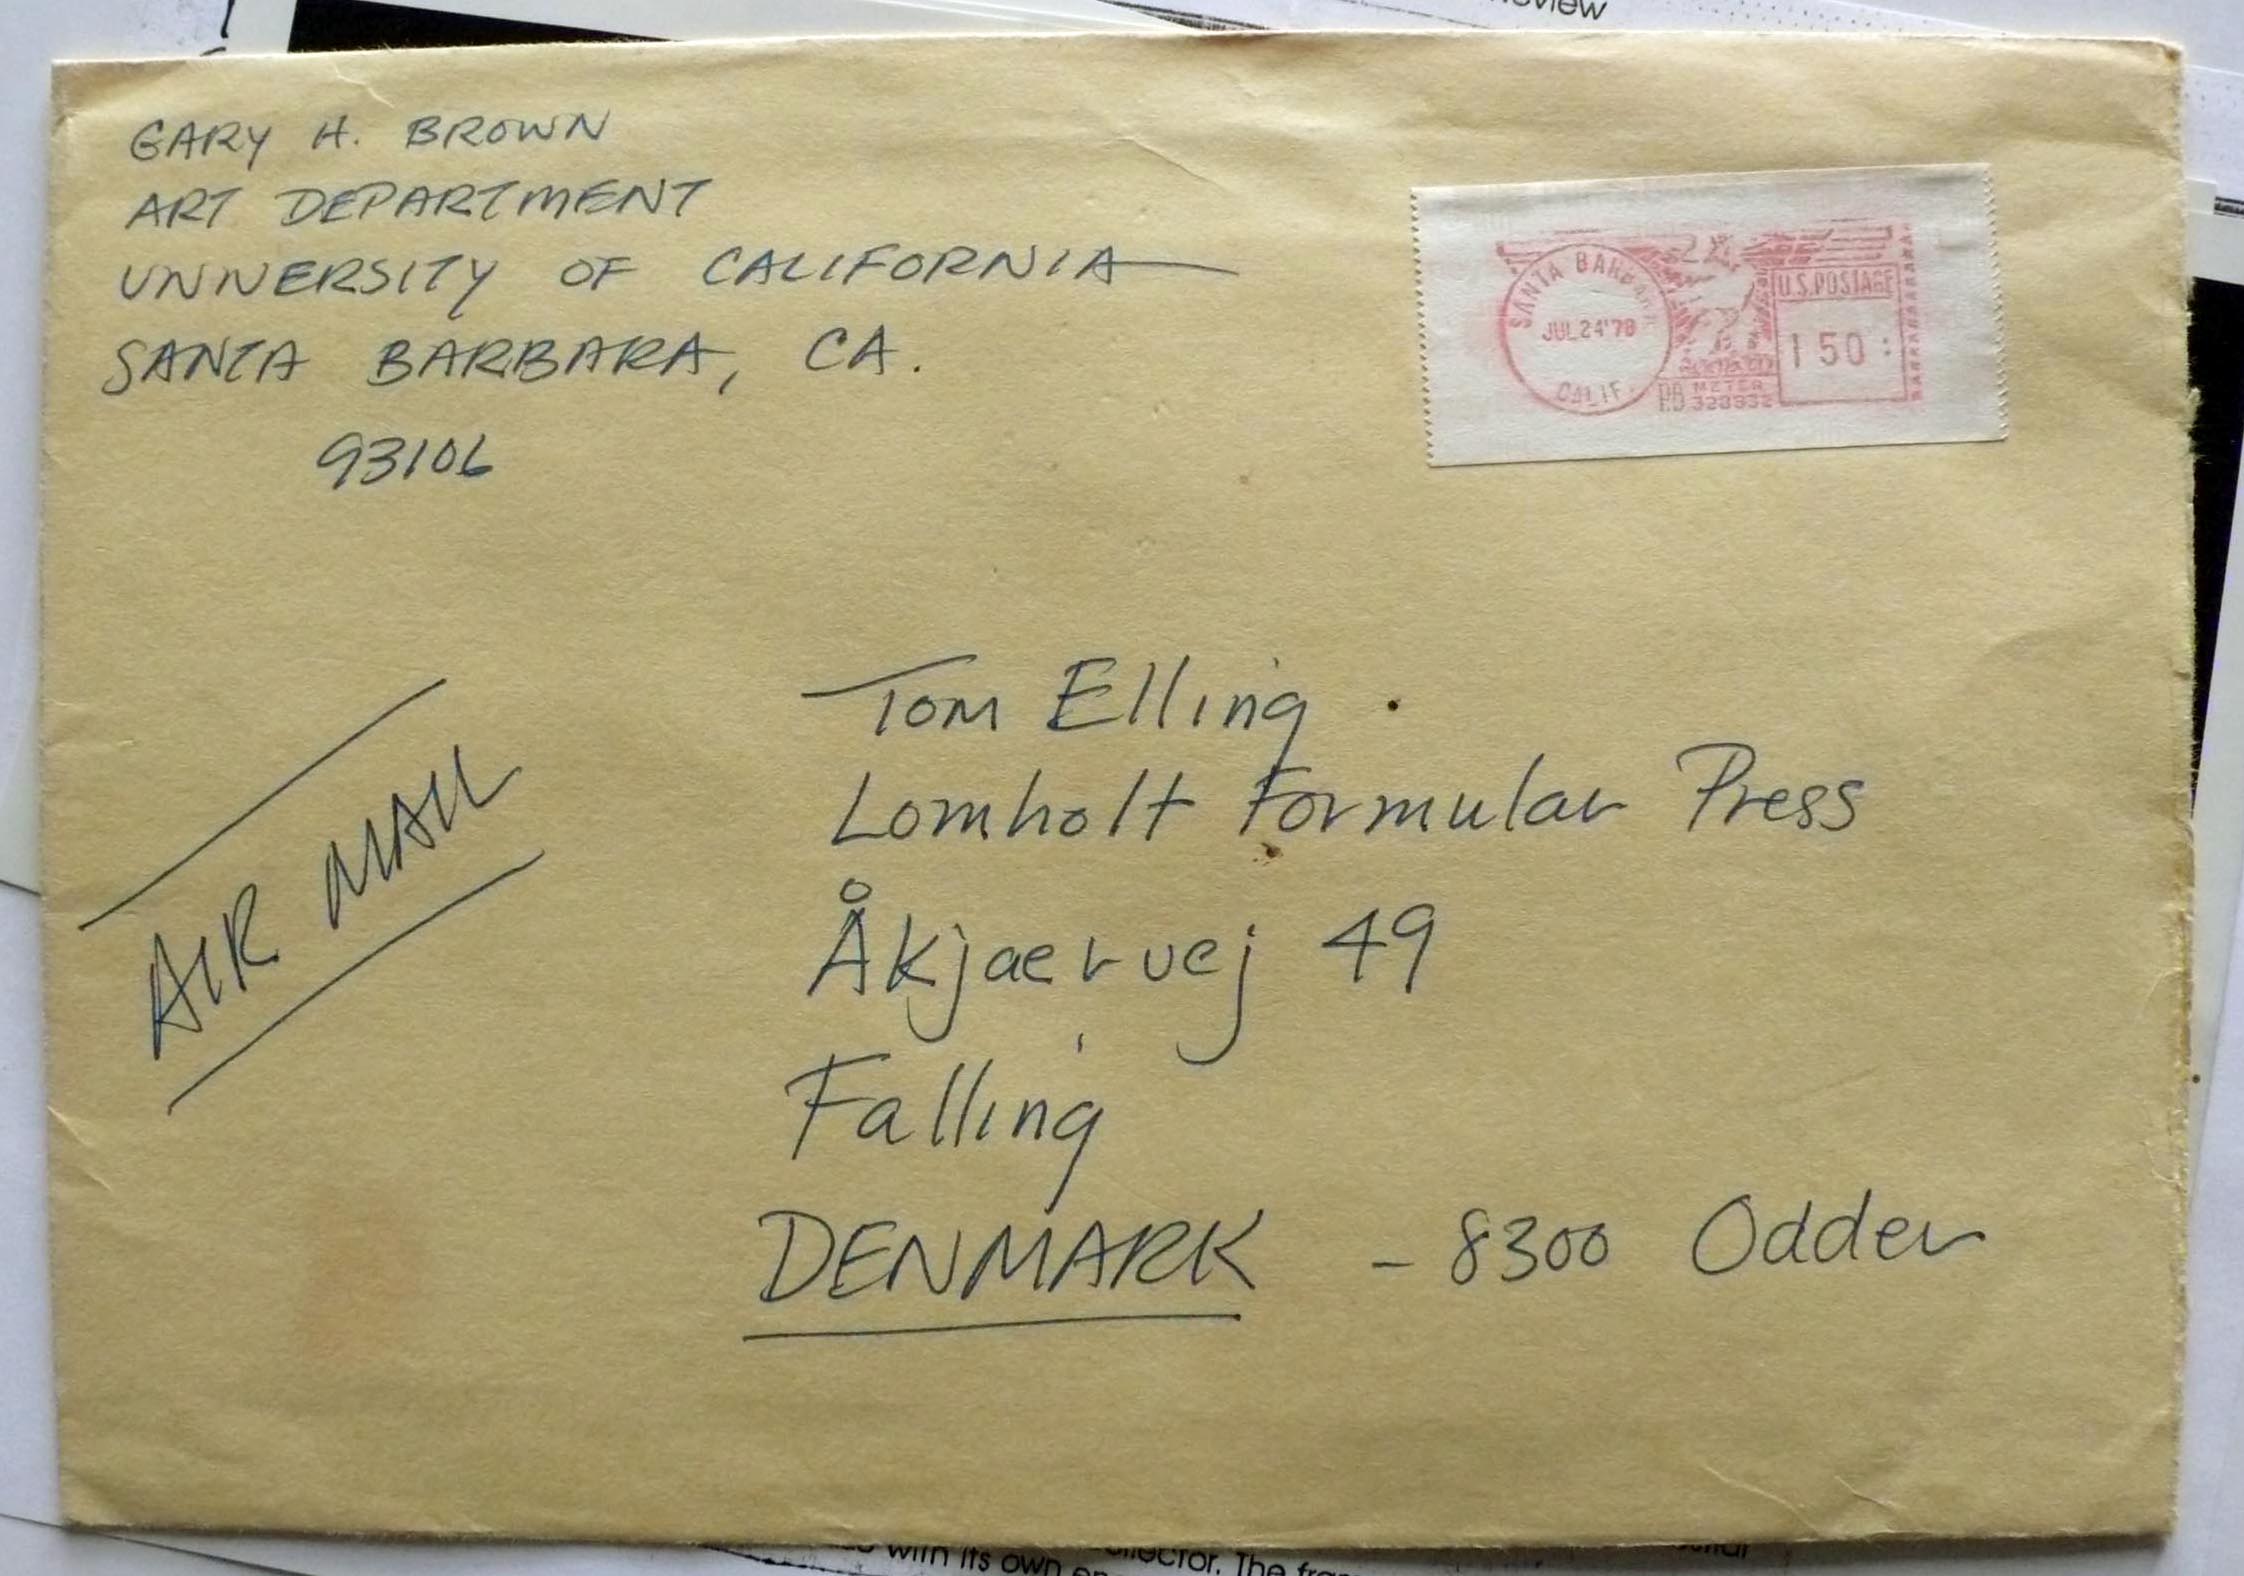 eview
GARY H. BROWN
ART DEPARTMENT
UNIVERSITY OF CALIFORNIA
SANTA BARBARA, CA.
93106
SANTA BARBARA
JUL 24 '78
CALIF.
U.S. POSTAGE
1 50
P.B. METER
AIR MAIL
Tom Elling
Lomholt Formular Press
Åkjaervej 49
Falling
DENMARK - 8300 Odder
with its own en
ollector. The fra